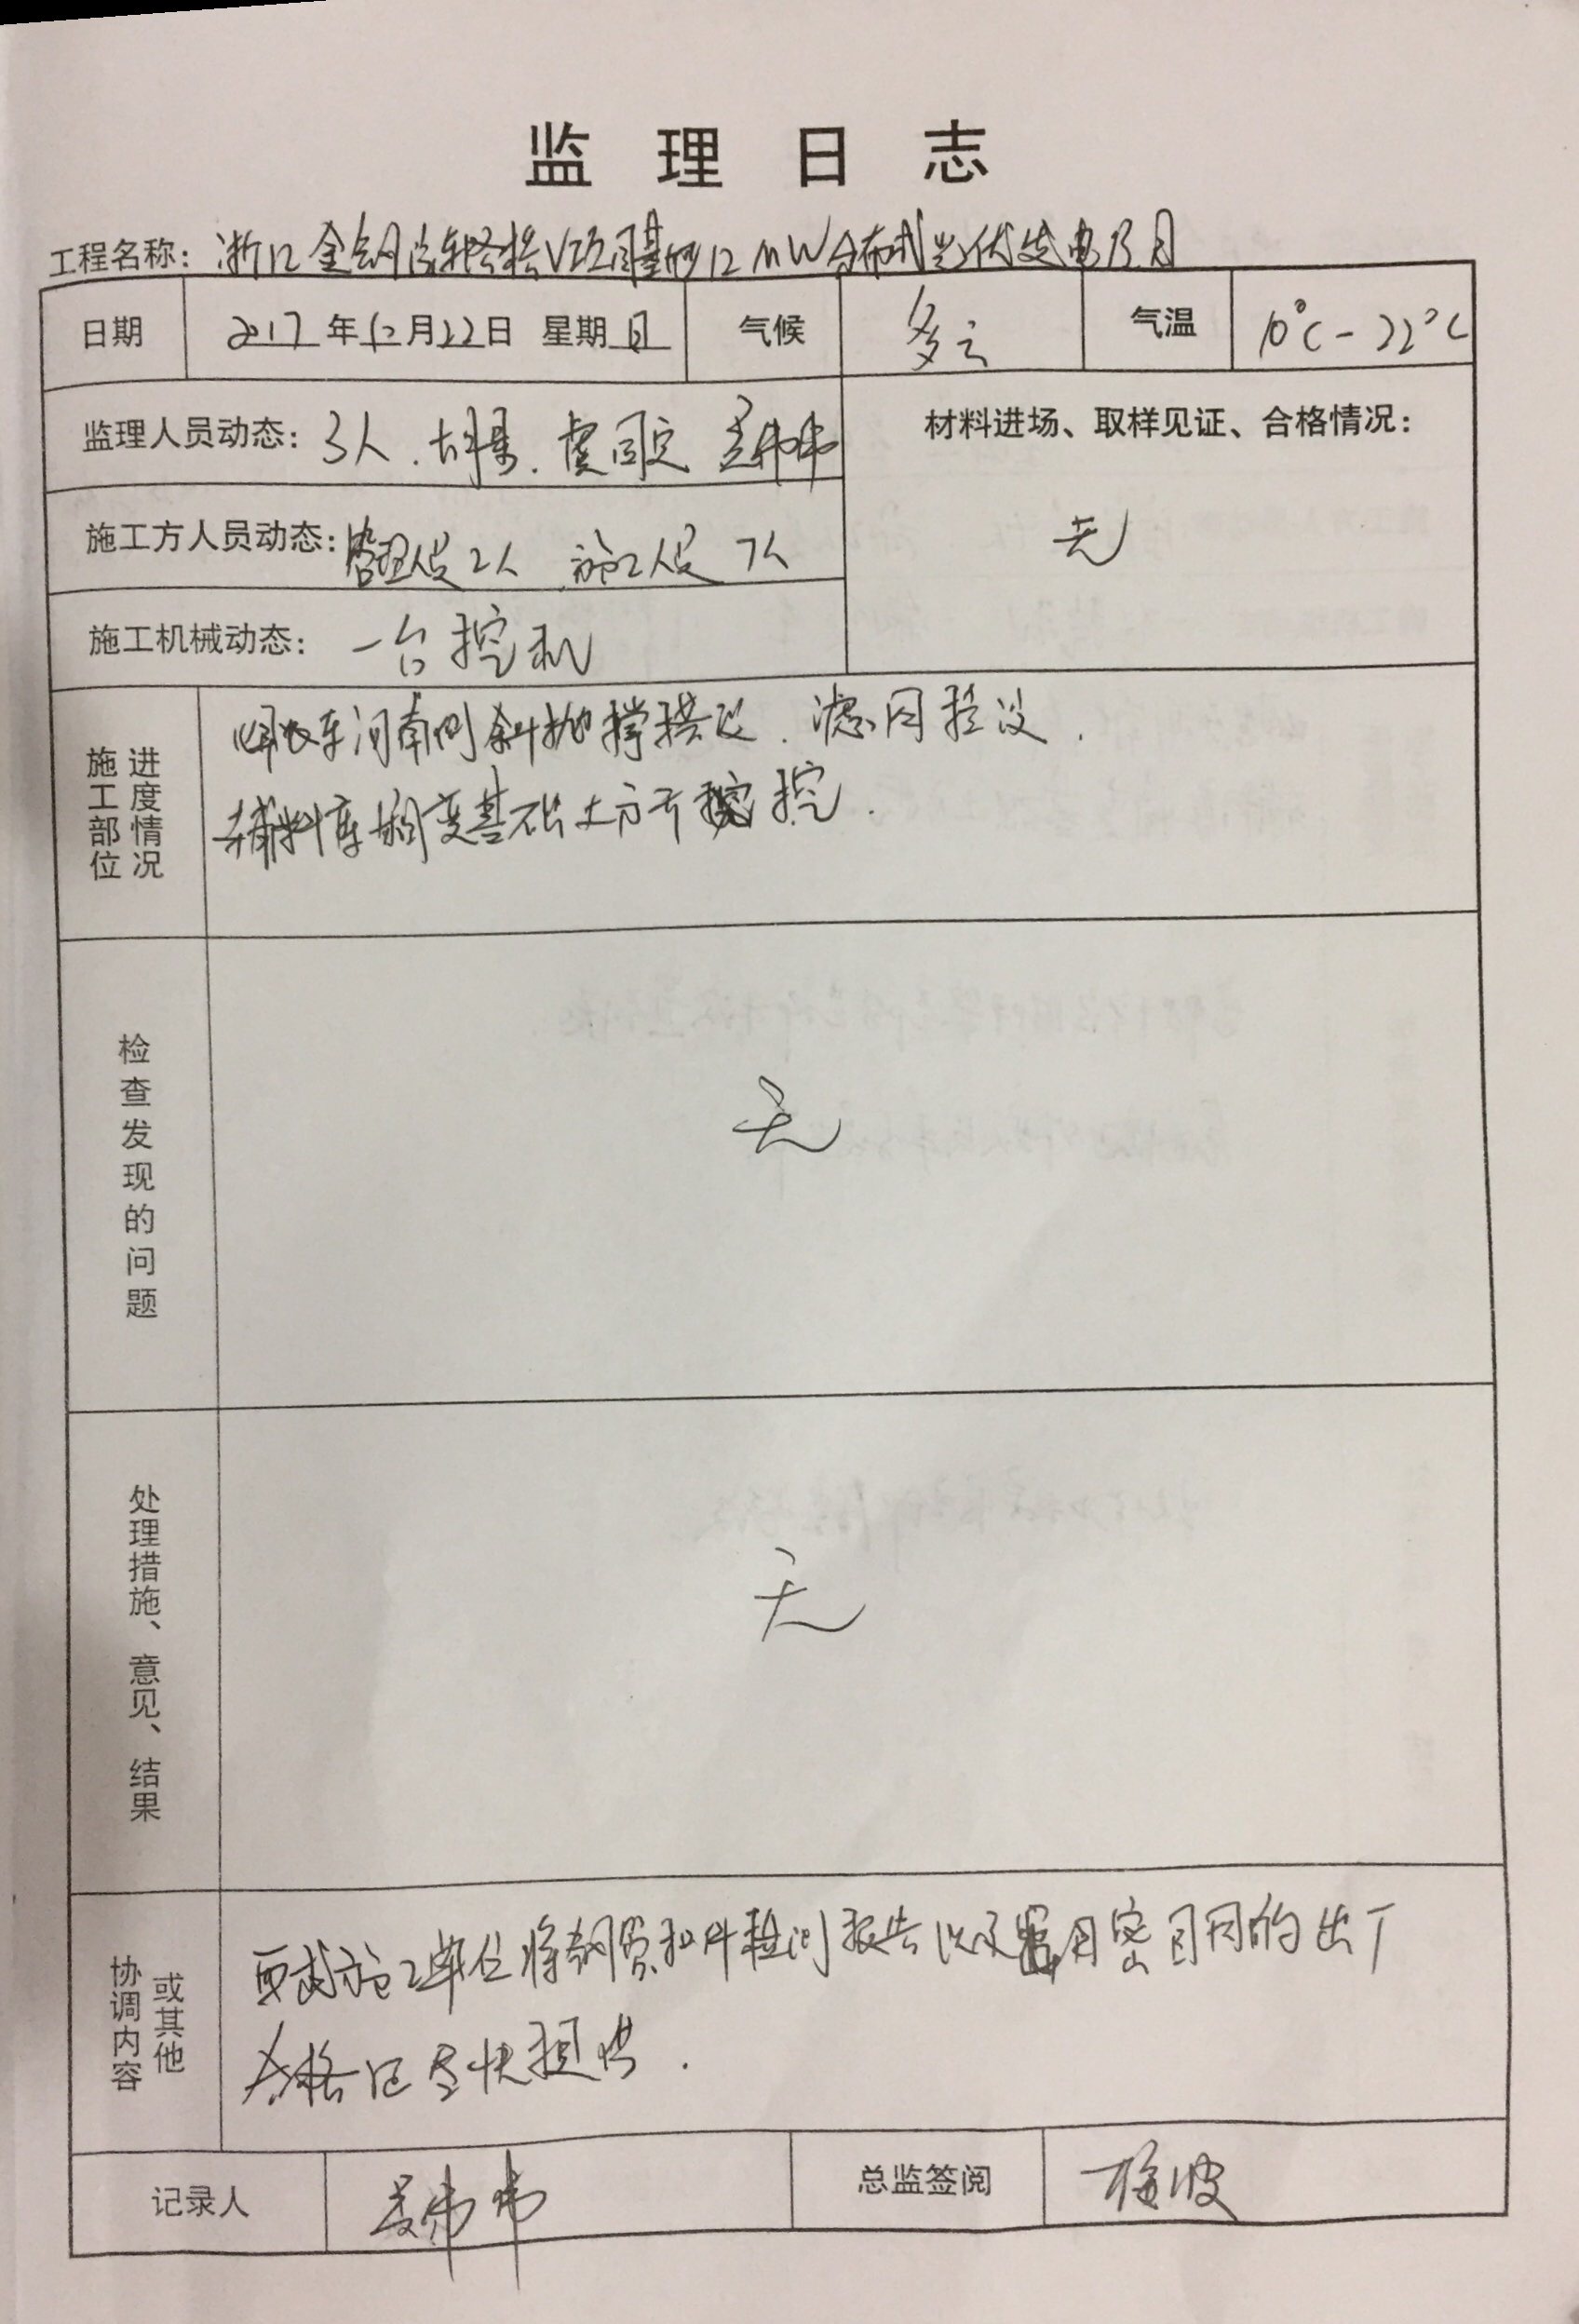 监理日志
工程名称: 浙江金钢汽车 基地12MW分布式光伏发电项目
日期 2017年12月22日 星期日 气候 多云 气温 10℃-22℃
监理人员动态: 3人. 胡景. 虞国定 吴伟伟
材料进场、取样见证、合格情况:
无
施工方人员动态: 管理人员2人 施工人员7人
施工机械动态: 一台挖机
施工部位 进度情况
车间南侧斜抛撑搭设. 滤网拉设.
辅料库 变基础土方开挖.
检查发现的问题
无
处理措施、意见、结果
无
协调内容 或其他
要求施工单位将钢管扣件检测报告以及 用密目网的出厂
合格证尽快提供.
记录人 吴伟伟 总监签阅